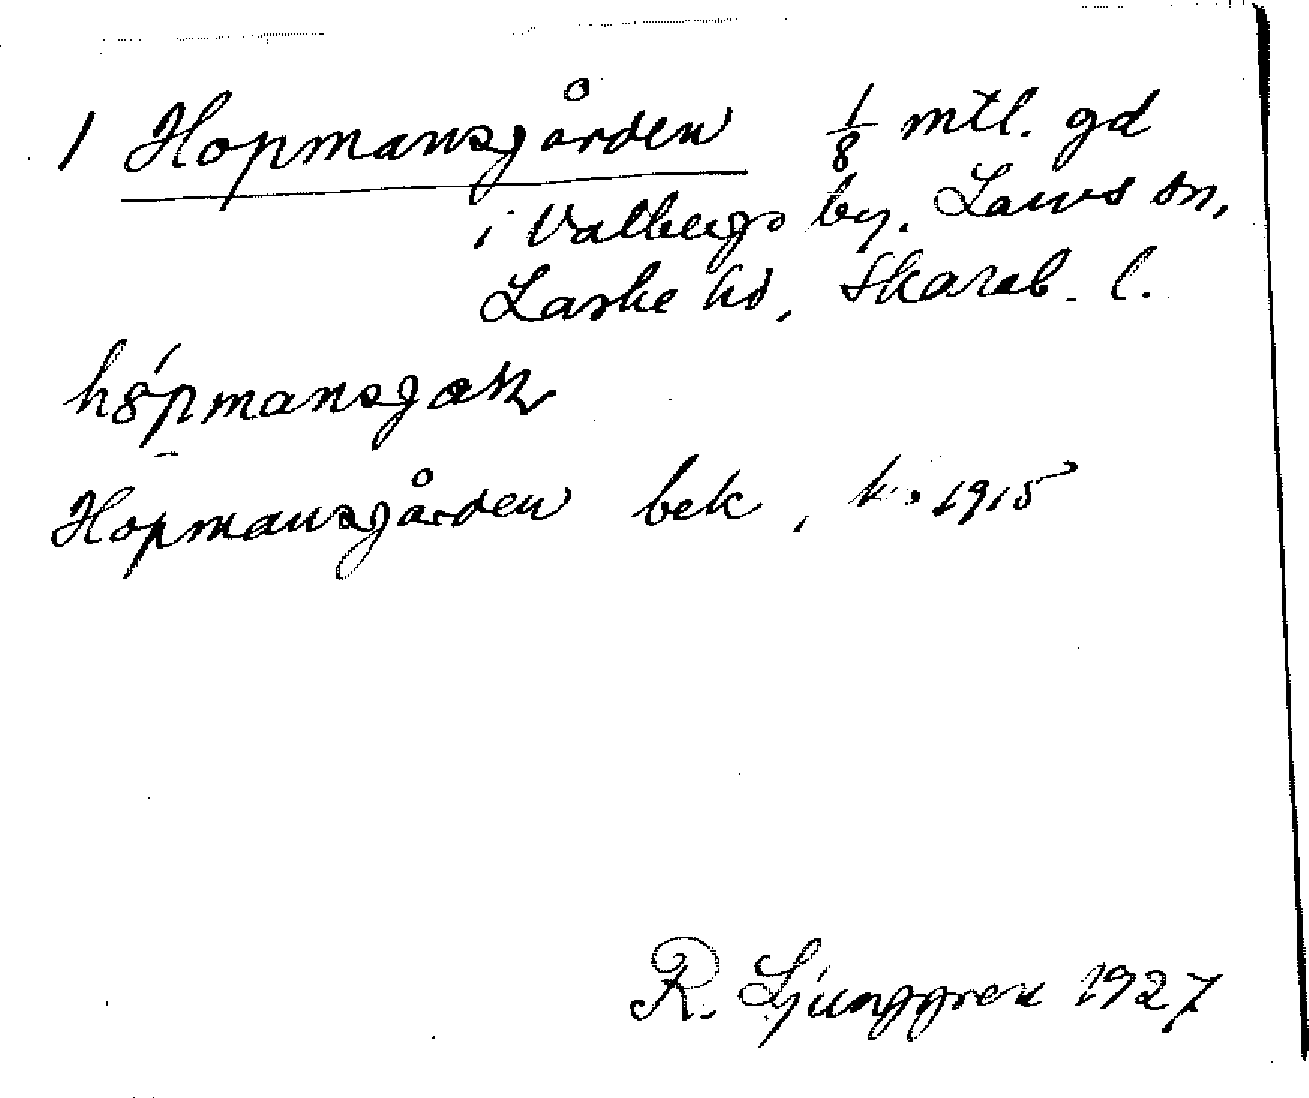 1 Hopmansgården 1/8 mtl. gd
i Valbergs by. Lavs sn,
Laske hd, Skarab. l.
Hopmansgården bek, k. 1915
R. Ljunggren 1927